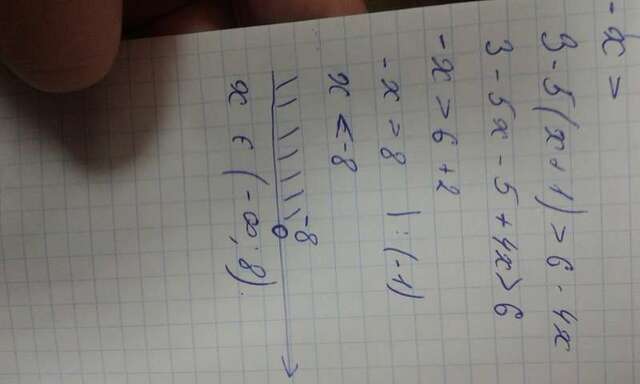 -x >
3 - 5(x+1) > 6 - 4x
3 - 5x - 5 + 4x > 6
-x > 6 + 2
-x > 8 | : (-1)
x < -8
-8
x ∈ (-∞; 8).